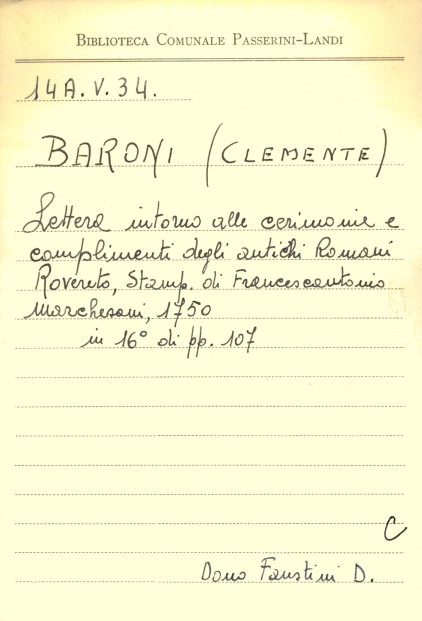 BIBLIOTECA COMUNALE PASSERINI-LANDI
14A.V.34.
BARONI (CLEMENTE)
Lettera intorno alle cerimonie e
complimenti degli antichi Romani
Rovereto, Stamp. di Francescantonio
Marchesani, 1750
in 16° di pp. 107
C
Dono Faustini D.